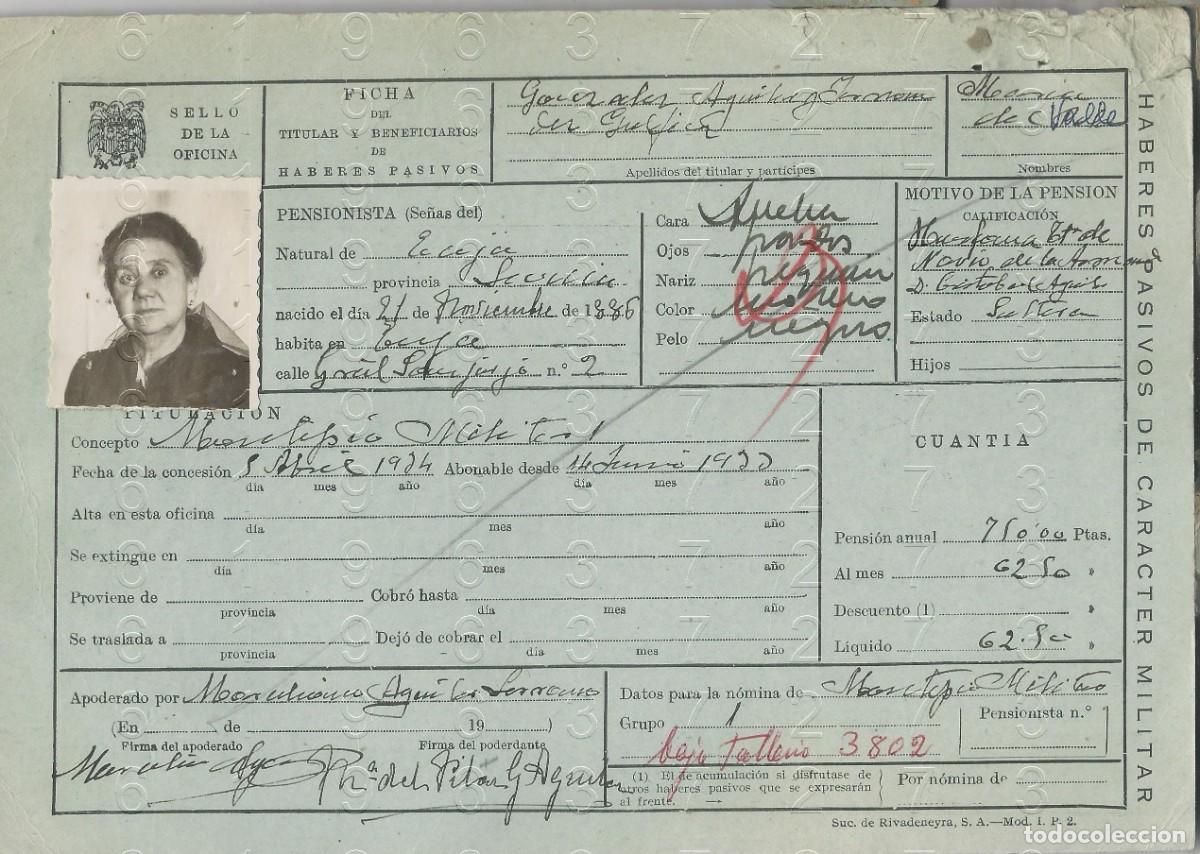 SELLO
DE LA
OFICINA
FICHA
DEL
TITULAR Y BENEFICIARIOS
DE
HABERES PASIVOS
Gonzalez Aguilar
Apellidos del titular y partícipes
Maria
del
Nombres
HABERES PASIVOS DE CARACTER MILITAR
PENSIONISTA (Señas del)
Natural de Ecija
provincia Sevilla
nacido el día 21 de Noviembre de 1886
habita en Ecija
calle Gral Sanjurjo n.º 2
Cara
Ojos pardos
Nariz
Color moreno
Pelo negro
MOTIVO DE LA PENSION
CALIFICACIÓN
Huerfana Tt. de
Navio de la Armada
D. Cristobal Aguilar
Estado Soltera
Hijos
TITULACIÓN
Concepto Montepio Militar
Fecha de la concesión 5 Abril 1934 Abonable desde 14 Junio 1933
día mes año día mes año
Alta en esta oficina
día mes año
Se extingue en
día mes año
Proviene de Cobró hasta
provincia día mes año
Se traslada a Dejó de cobrar el
provincia día mes año
CUANTIA
Pensión anual 750'00 Ptas.
Al mes 62 50 »
Descuento (1) »
Líquido 62.50 »
Apoderado por Marcelino Aguilar Serrano
(En de 19 )
Firma del apoderado Firma del poderdante
Mª del Pilar G Aguilar
Datos para la nómina de Montepio Militar
Grupo 1
Pensionista n.º
baja 3802
(1) El de acumulación si disfrutase de
otros haberes pasivos que se expresarán
al frente. →
Por nómina de
Suc. de Rivadeneyra, S. A.—Mod. 1. P. 2.
todocoleccion
6 1 9 6 3 7 2 7 3